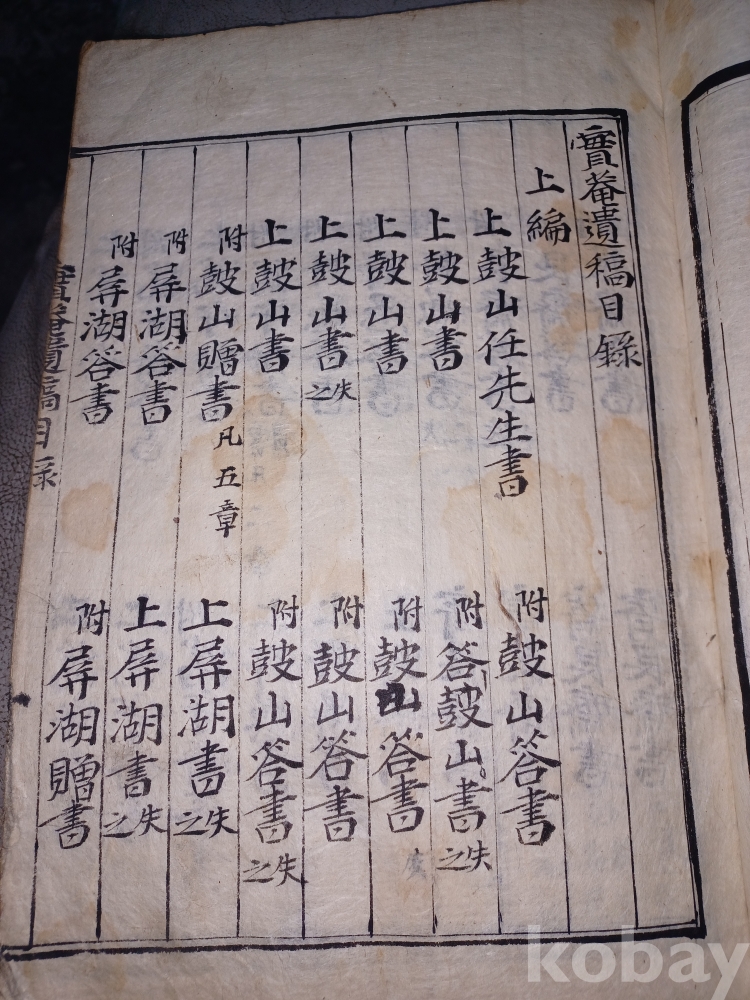 實菴遺稿目錄
上編
上皷山任先生書 附皷山答書
上皷山書 附答皷山書失之
上皷山書 附皷山答書
上皷山書失之 附皷山答書
上皷山書 附皷山答書失之
附皷山贈書凡五章 上屏湖書失之
附屏湖答書 上屏湖書失之
附屏湖答書 附屏湖贈書
實菴遺稿目錄
kobay